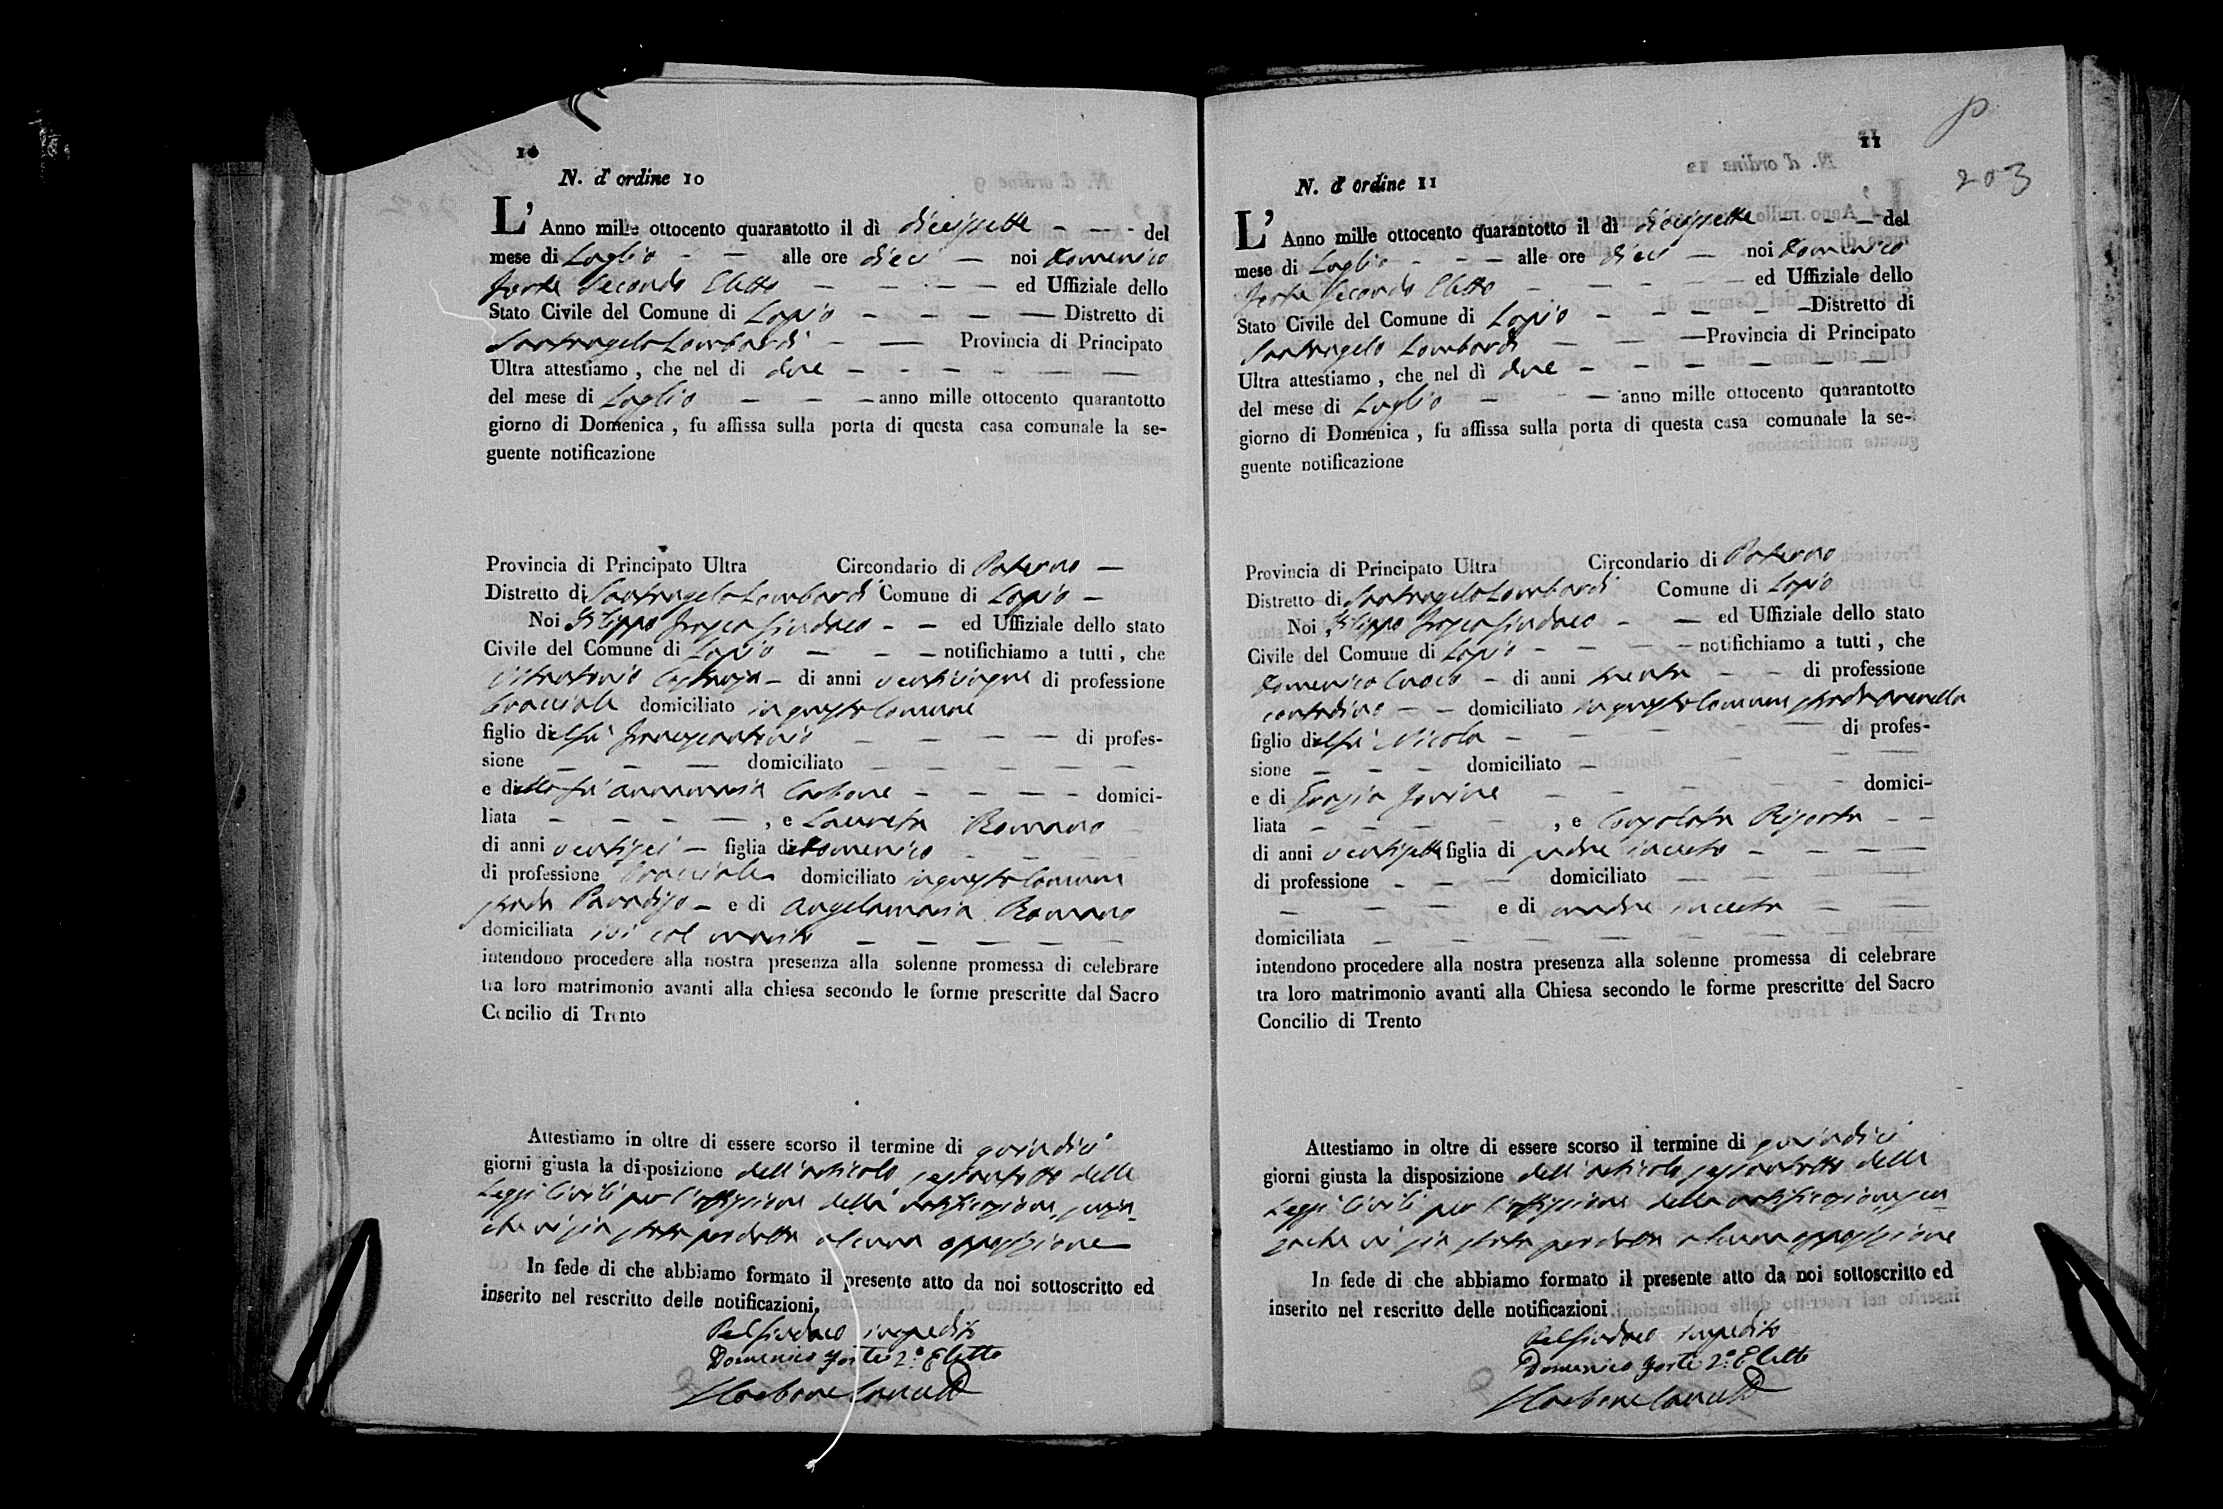 10
N. d' ordine 10
L' Anno mille ottocento quarantotto il dì diecissette - - - del
mese di Luglio - - alle ore dieci - noi Domenico
Forte Secondo Eletto - - - - ed Uffiziale dello
Stato Civile del Comune di Lapio - - - - Distretto di
Santangelo Lombardi - - Provincia di Principato
Ultra attestiamo , che nel dì due - - - - - -
del mese di Luglio - - - anno mille ottocento quarantotto
giorno di Domenica , fu affissa sulla porta di questa casa comunale la se-
guente notificazione
Provincia di Principato Ultra Circondario di Paterno -
Distretto di Santangelo Lombardi Comune di Lapio -
Noi Filippo Sindaco - - ed Uffiziale dello stato
Civile del Comune di Lapio - - - notifichiamo a tutti , che
Vitantonio - di anni venticinque di professione
bracciale domiciliato in questo Comune
figlio del fu Francescantonio - - - - di profes-
sione - - - domiciliato - - - - -
e della fu Annamaria Carbone - - - - domici-
liata - - - - , e Laureta Romano
di anni ventisei - figlia di Domenico - - - -
di professione bracciale domiciliato in questo Comune
strada Paradiso - e di Angelamaria Romano
domiciliata ivi col marito - - - - -
intendono procedere alla nostra presenza alla solenne promessa di celebrare
tra loro matrimonio avanti alla chiesa secondo le forme prescritte dal Sacro
Concilio di Trento
Attestiamo in oltre di essere scorso il termine di quindici
giorni giusta la disposizione dell'articolo sessantotto delle
Leggi Civili per l'affissione della notificazione, senza
che vi sia stata prodotta alcuna opposizione
In fede di che abbiamo formato il presente atto da noi sottoscritto ed
inserito nel rescritto delle notificazioni.
Pel Sindaco impedito
Domenico Forte 2.º Eletto
Carbone
11
203
N. d' ordine 11
L' Anno mille ottocento quarantotto il dì diecissette - - - del
mese di Luglio - - - alle ore dieci - noi Domenico
Forte Secondo Eletto - - - - - ed Uffiziale dello
Stato Civile del Comune di Lapio - - - - - Distretto di
Santangelo Lombardi - - - Provincia di Principato
Ultra attestiamo , che nel dì due - - - - - -
del mese di Luglio - - - anno mille ottocento quarantotto
giorno di Domenica , fu affissa sulla porta di questa casa comunale la se-
guente notificazione
Provincia di Principato Ultra Circondario di Paterno
Distretto di Santangelo Lombardi Comune di Lapio
Noi Filippo Sindaco - - ed Uffiziale dello stato
Civile del Comune di Lapio - - - - notifichiamo a tutti , che
Domenico Cuoco - di anni trenta - - di professione
contadino - - domiciliato in questo Comune strada Arenella
figlio del fu Nicola - - - - di profes-
sione - - - domiciliato - - - -
e di Grazia Iovine - - - - - domici-
liata - - - - , e Consolata Risorta - -
di anni ventisette figlia di padre incerto - - - -
di professione - - - domiciliato - - -
- - - e di madre incerta - -
domiciliata - - - - - - -
intendono procedere alla nostra presenza alla solenne promessa di celebrare
tra loro matrimonio avanti alla Chiesa secondo le forme prescritte del Sacro
Concilio di Trento
Attestiamo in oltre di essere scorso il termine di quindici
giorni giusta la disposizione dell'articolo sessantotto delle
Leggi Civili per l'affissione della notificazione, sen-
za che vi sia stata prodotta alcuna opposizione
In fede di che abbiamo formato il presente atto da noi sottoscritto ed
inserito nel rescritto delle notificazioni.
Pel Sindaco impedito
Domenico Forte 2.º Eletto
Carbone